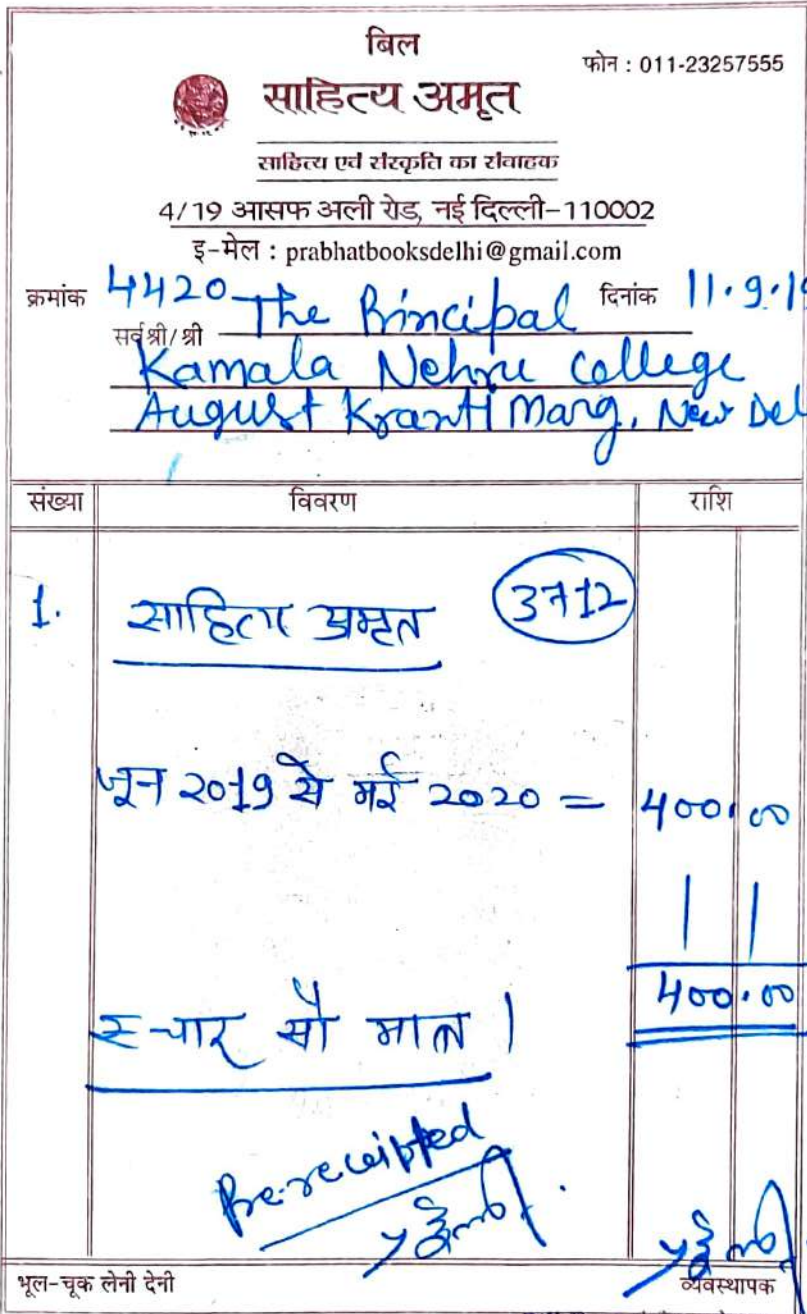 बिल
फोन : 011-23257555
साहित्य अमृत
साहित्य एवं संस्कृति का संवाहक
4/19 आसफ अली रोड, नई दिल्ली-110002
इ-मेल : prabhatbooksdelhi@gmail.com
क्रमांक 4420 दिनांक 11.9.19
सर्वश्री/श्री The Principal
Kamala Nehru College
August Kranti Marg, New Del
संख्या विवरण राशि
1. साहित्य अमृत 3712
जून 2019 से मई 2020 = 400.00
400.00
रु चार सौ मात्र ।
Pre-receipted
भूल-चूक लेनी देनी व्यवस्थापक